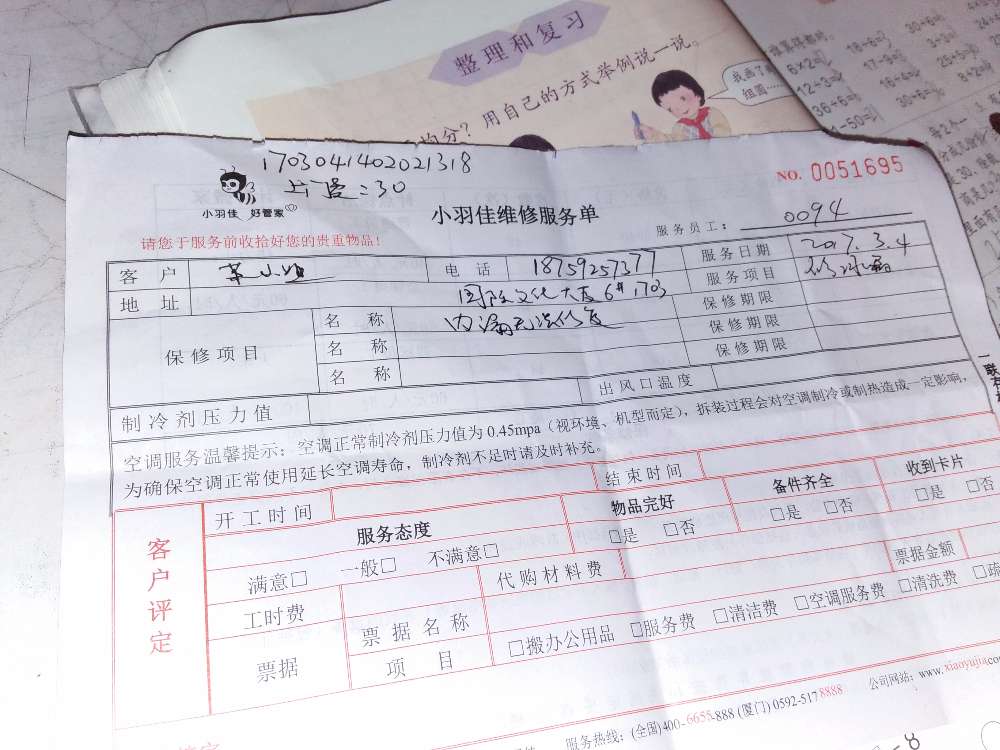 整理和复习
用自己的方式举例说一说。
我画了
组圆……
6×2=
18-6=
30÷6=
12÷3=
17-9=
3÷3=
36÷6=
16÷4=
25÷5=
-50=
30÷6=
8÷2=
1703041402021318
上门费：30
NO. 0051695
小羽佳 好管家
小羽佳维修服务单
服务员工： 0094
请您于服务前收拾好您的贵重物品！
客户 小姐 电话 18759257377 服务日期 2017.3.4
地址 国际文化大厦6#1703 服务项目 修冰箱
保修项目 名称 内漏无法修复 保修期限
名称 保修期限
名称 保修期限
制冷剂压力值 出风口温度
空调服务温馨提示：空调正常制冷剂压力值为0.45mpa（视环境、机型而定），拆装过程会对空调制冷或制热造成一定影响，
为确保空调正常使用延长空调寿命，制冷剂不足时请及时补充。
一联存
客户评定
开工时间 结束时间
服务态度 物品完好 备件齐全 收到卡片
满意□ 一般□ 不满意□ □是 □否 □是 □否 □是 □否
工时费 代购材料费 票据金额
票据 票据名称 □搬办公用品 □服务费 □清洁费 □空调服务费 □清洗费 □疏
项目
服务热线：(全国)400-6655-888 (厦门)0592-5178888 公司网站：www.xiaoyujia.co